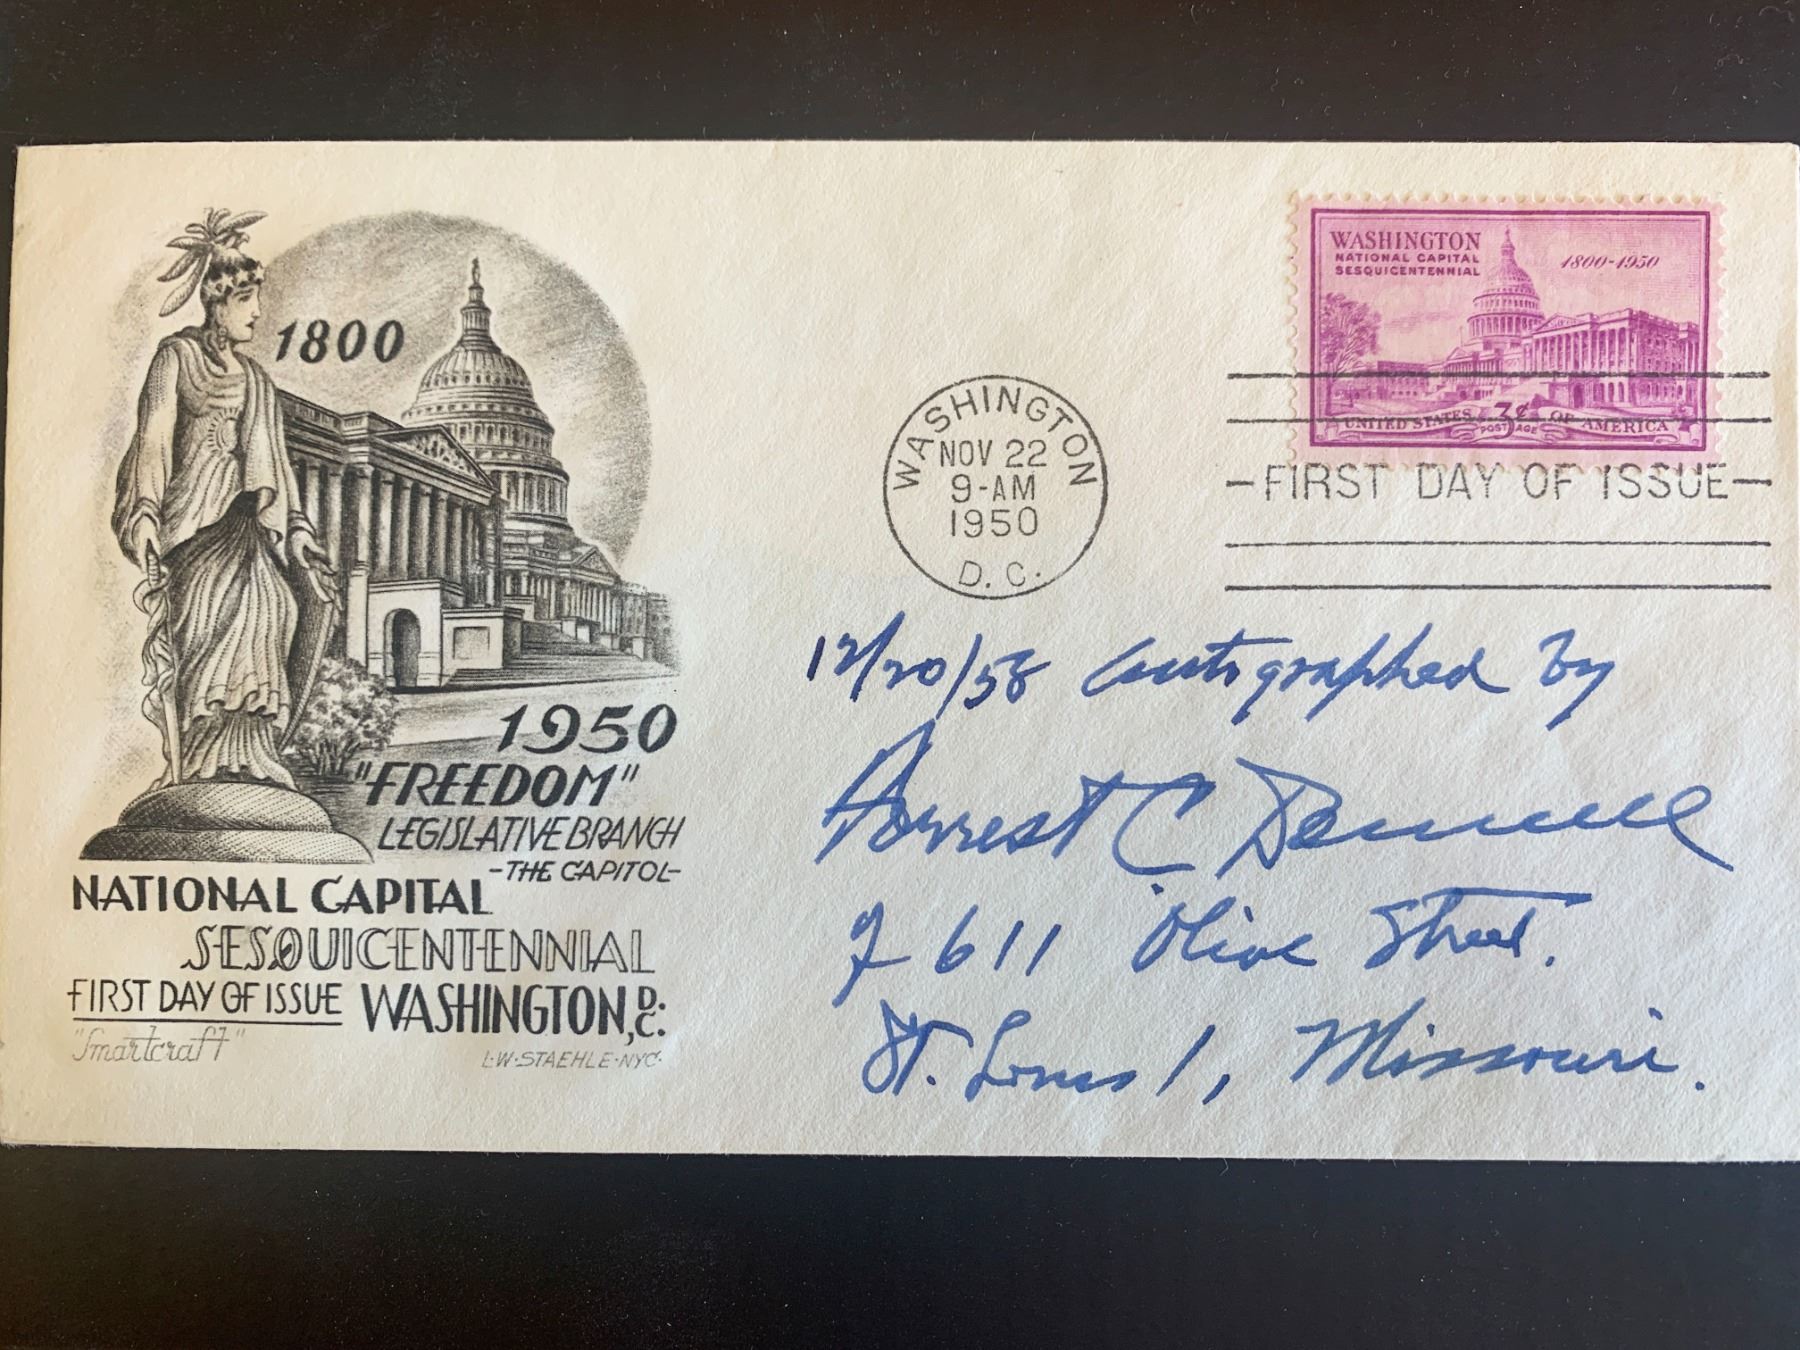 1800
1950
"FREEDOM"
LEGISLATIVE BRANCH
-THE CAPITOL-
NATIONAL CAPITAL
SESQUICENTENNIAL
FIRST DAY OF ISSUE WASHINGTON, D.C.
"Smartcraft"
L·W·STAEHLE·NYC·
WASHINGTON
NOV 22
9-AM
1950
D.C.
WASHINGTON
NATIONAL CAPITAL
SESQUICENTENNIAL
1800-1950
UNITED STATES 3¢ OF AMERICA
POSTAGE
FIRST DAY OF ISSUE
12/20/58 Autographed by
Forrest C Donnell
of 611 Olive Street.
St. Louis 1, Missouri.